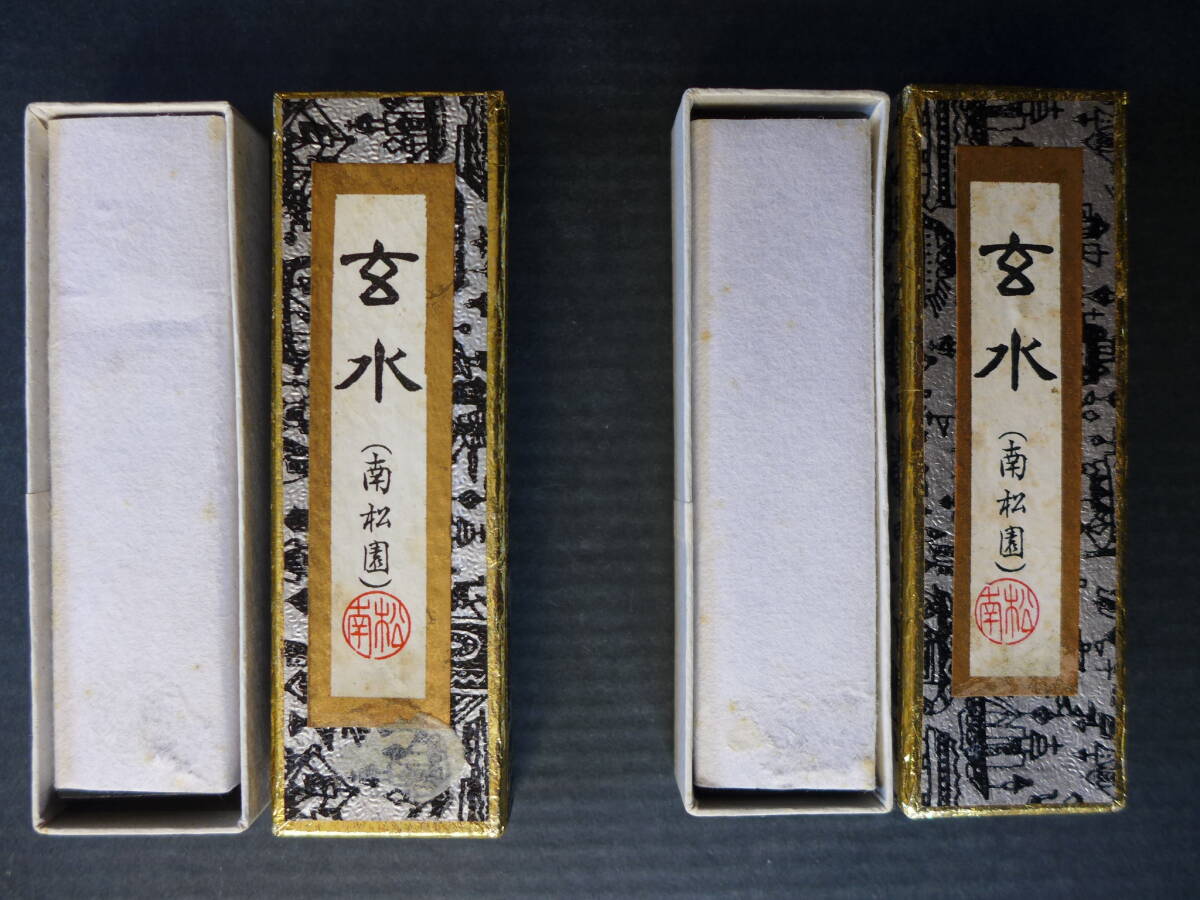 玄水
(南松園)
松南
玄水
(南松園)
松南